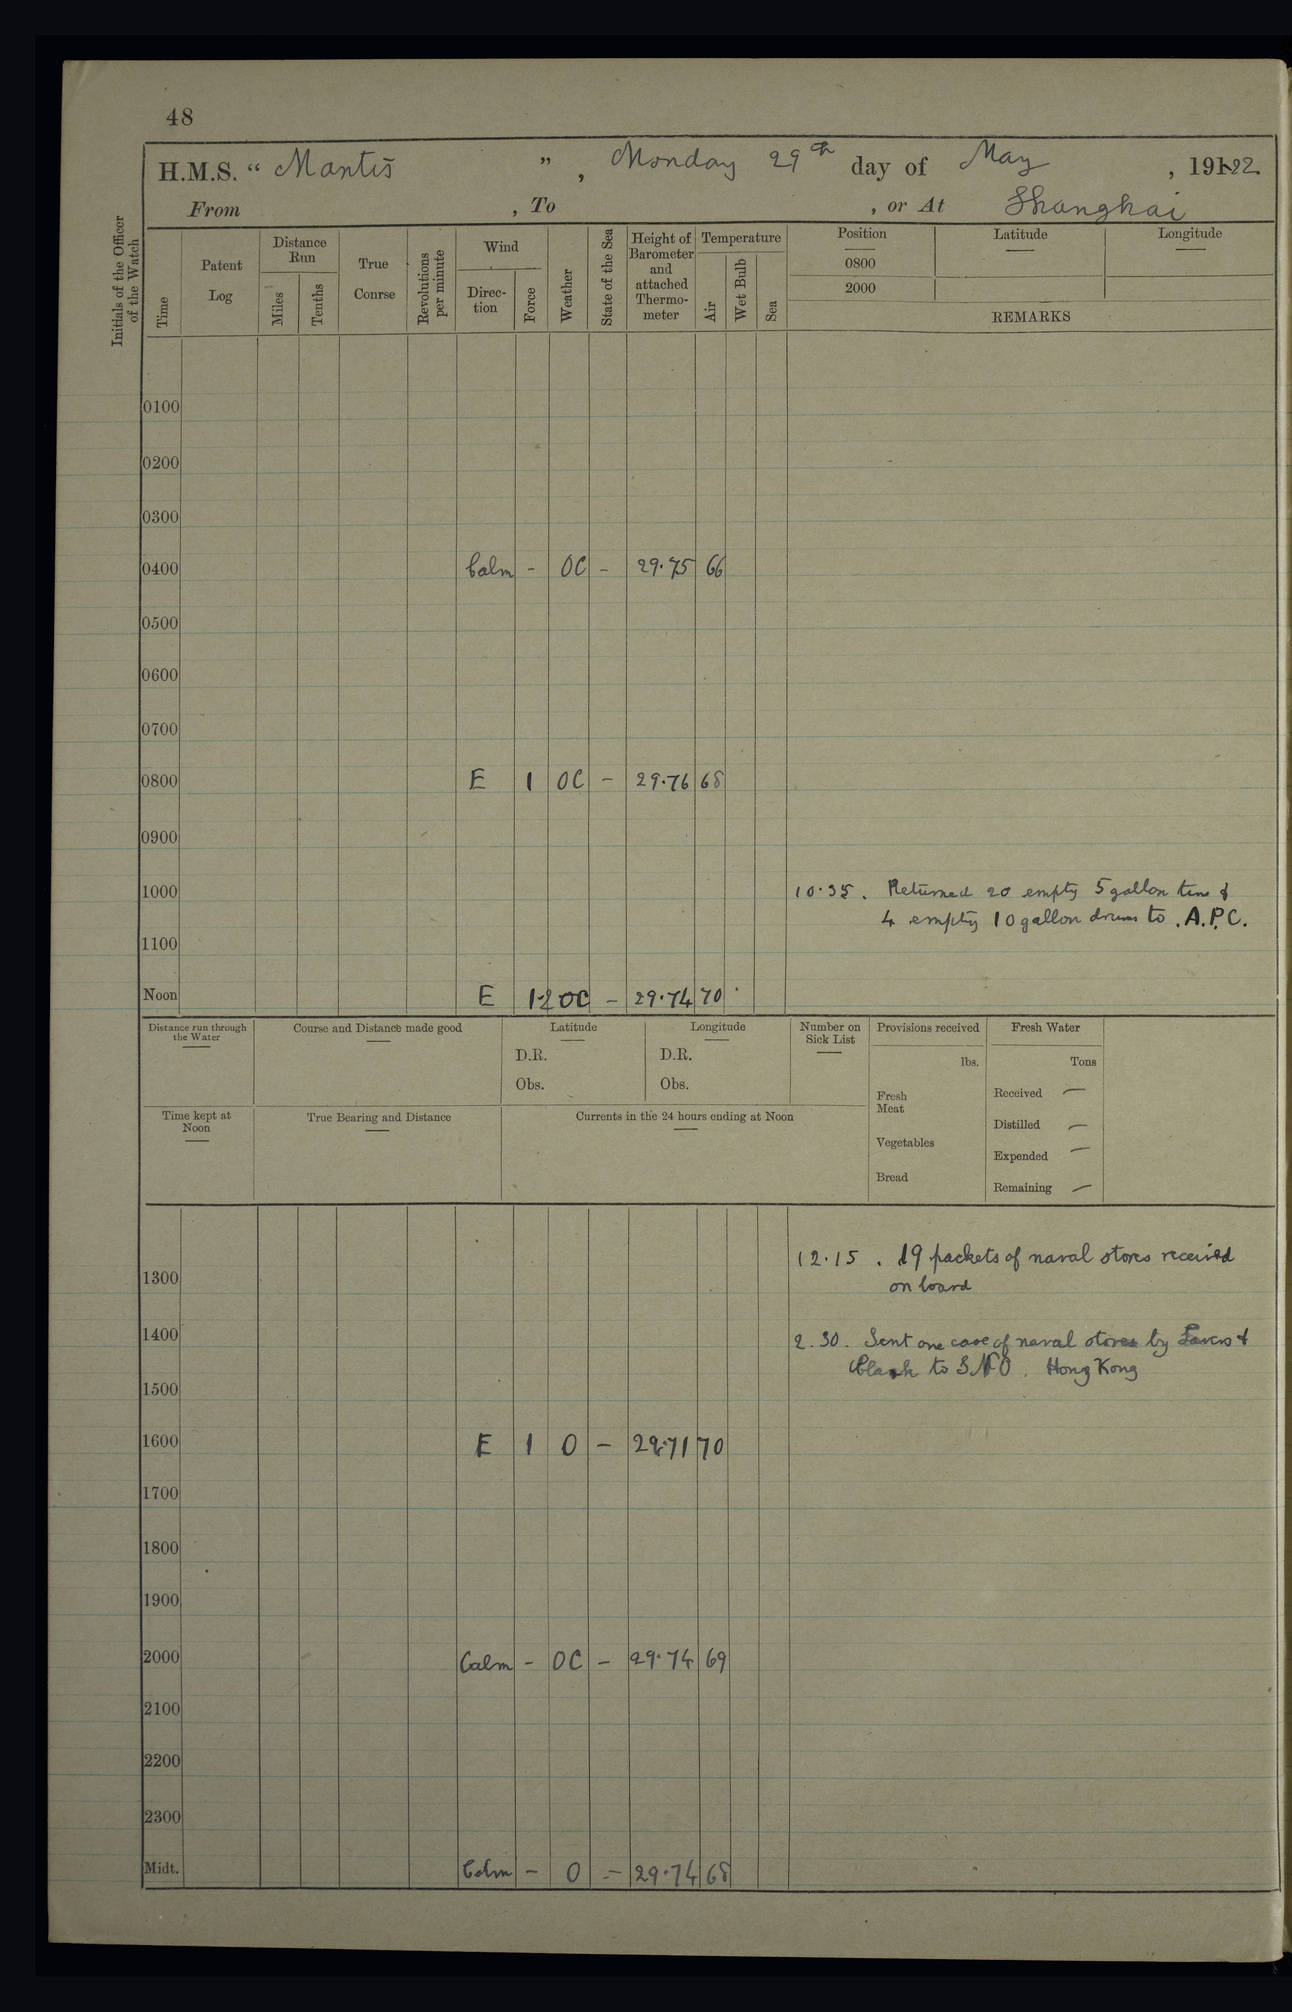 48
H.M.S. “ Mantis ” , Monday 29th day of May , 1922
From , To , or At Shanghai
Initials of the Officer of the Watch
Time
Patent Log
Distance Run
Miles
Tenths
True Conrse
Revolutions per minute
Wind
Direc- tion
Force
Weather
State of the Sea
Height of Barometer and attached Thermo- meter
Temperature
Air
Wet Bulb
Sea
Position Latitude Longitude
0800
2000
REMARKS
0100
0200
0300
0400 Calm - OC - 29.75 66
0500
0600
0700
0800 E 1 OC - 29.76 68
0900
1000 10.35. Returned 20 empty 5 gallon tins &
4 empty 10 gallon drums to A.P.C.
1100
Noon E 1-2 OC - 29.74 70
Distance run through the Water
Course and Distance made good
Latitude
D.R.
Obs.
Longitude
D.R.
Obs.
Number on Sick List
Provisions received
lbs.
Fresh Meat
Vegetables
Bread
Fresh Water
Tons
Received —
Distilled —
Expended —
Remaining —
Time kept at Noon
True Bearing and Distance
Currents in the 24 hours ending at Noon
12.15 . 19 packets of naval stores received
on board
1300
1400 2.30. Sent one case of naval stores by &
Clark to S N O. Hong Kong
1500
1600 E 1 O - 29.71 70
1700
1800
1900
2000 Calm - OC - 29.74 69
2100
2200
2300
Midt. Calm - O - 29.74 68